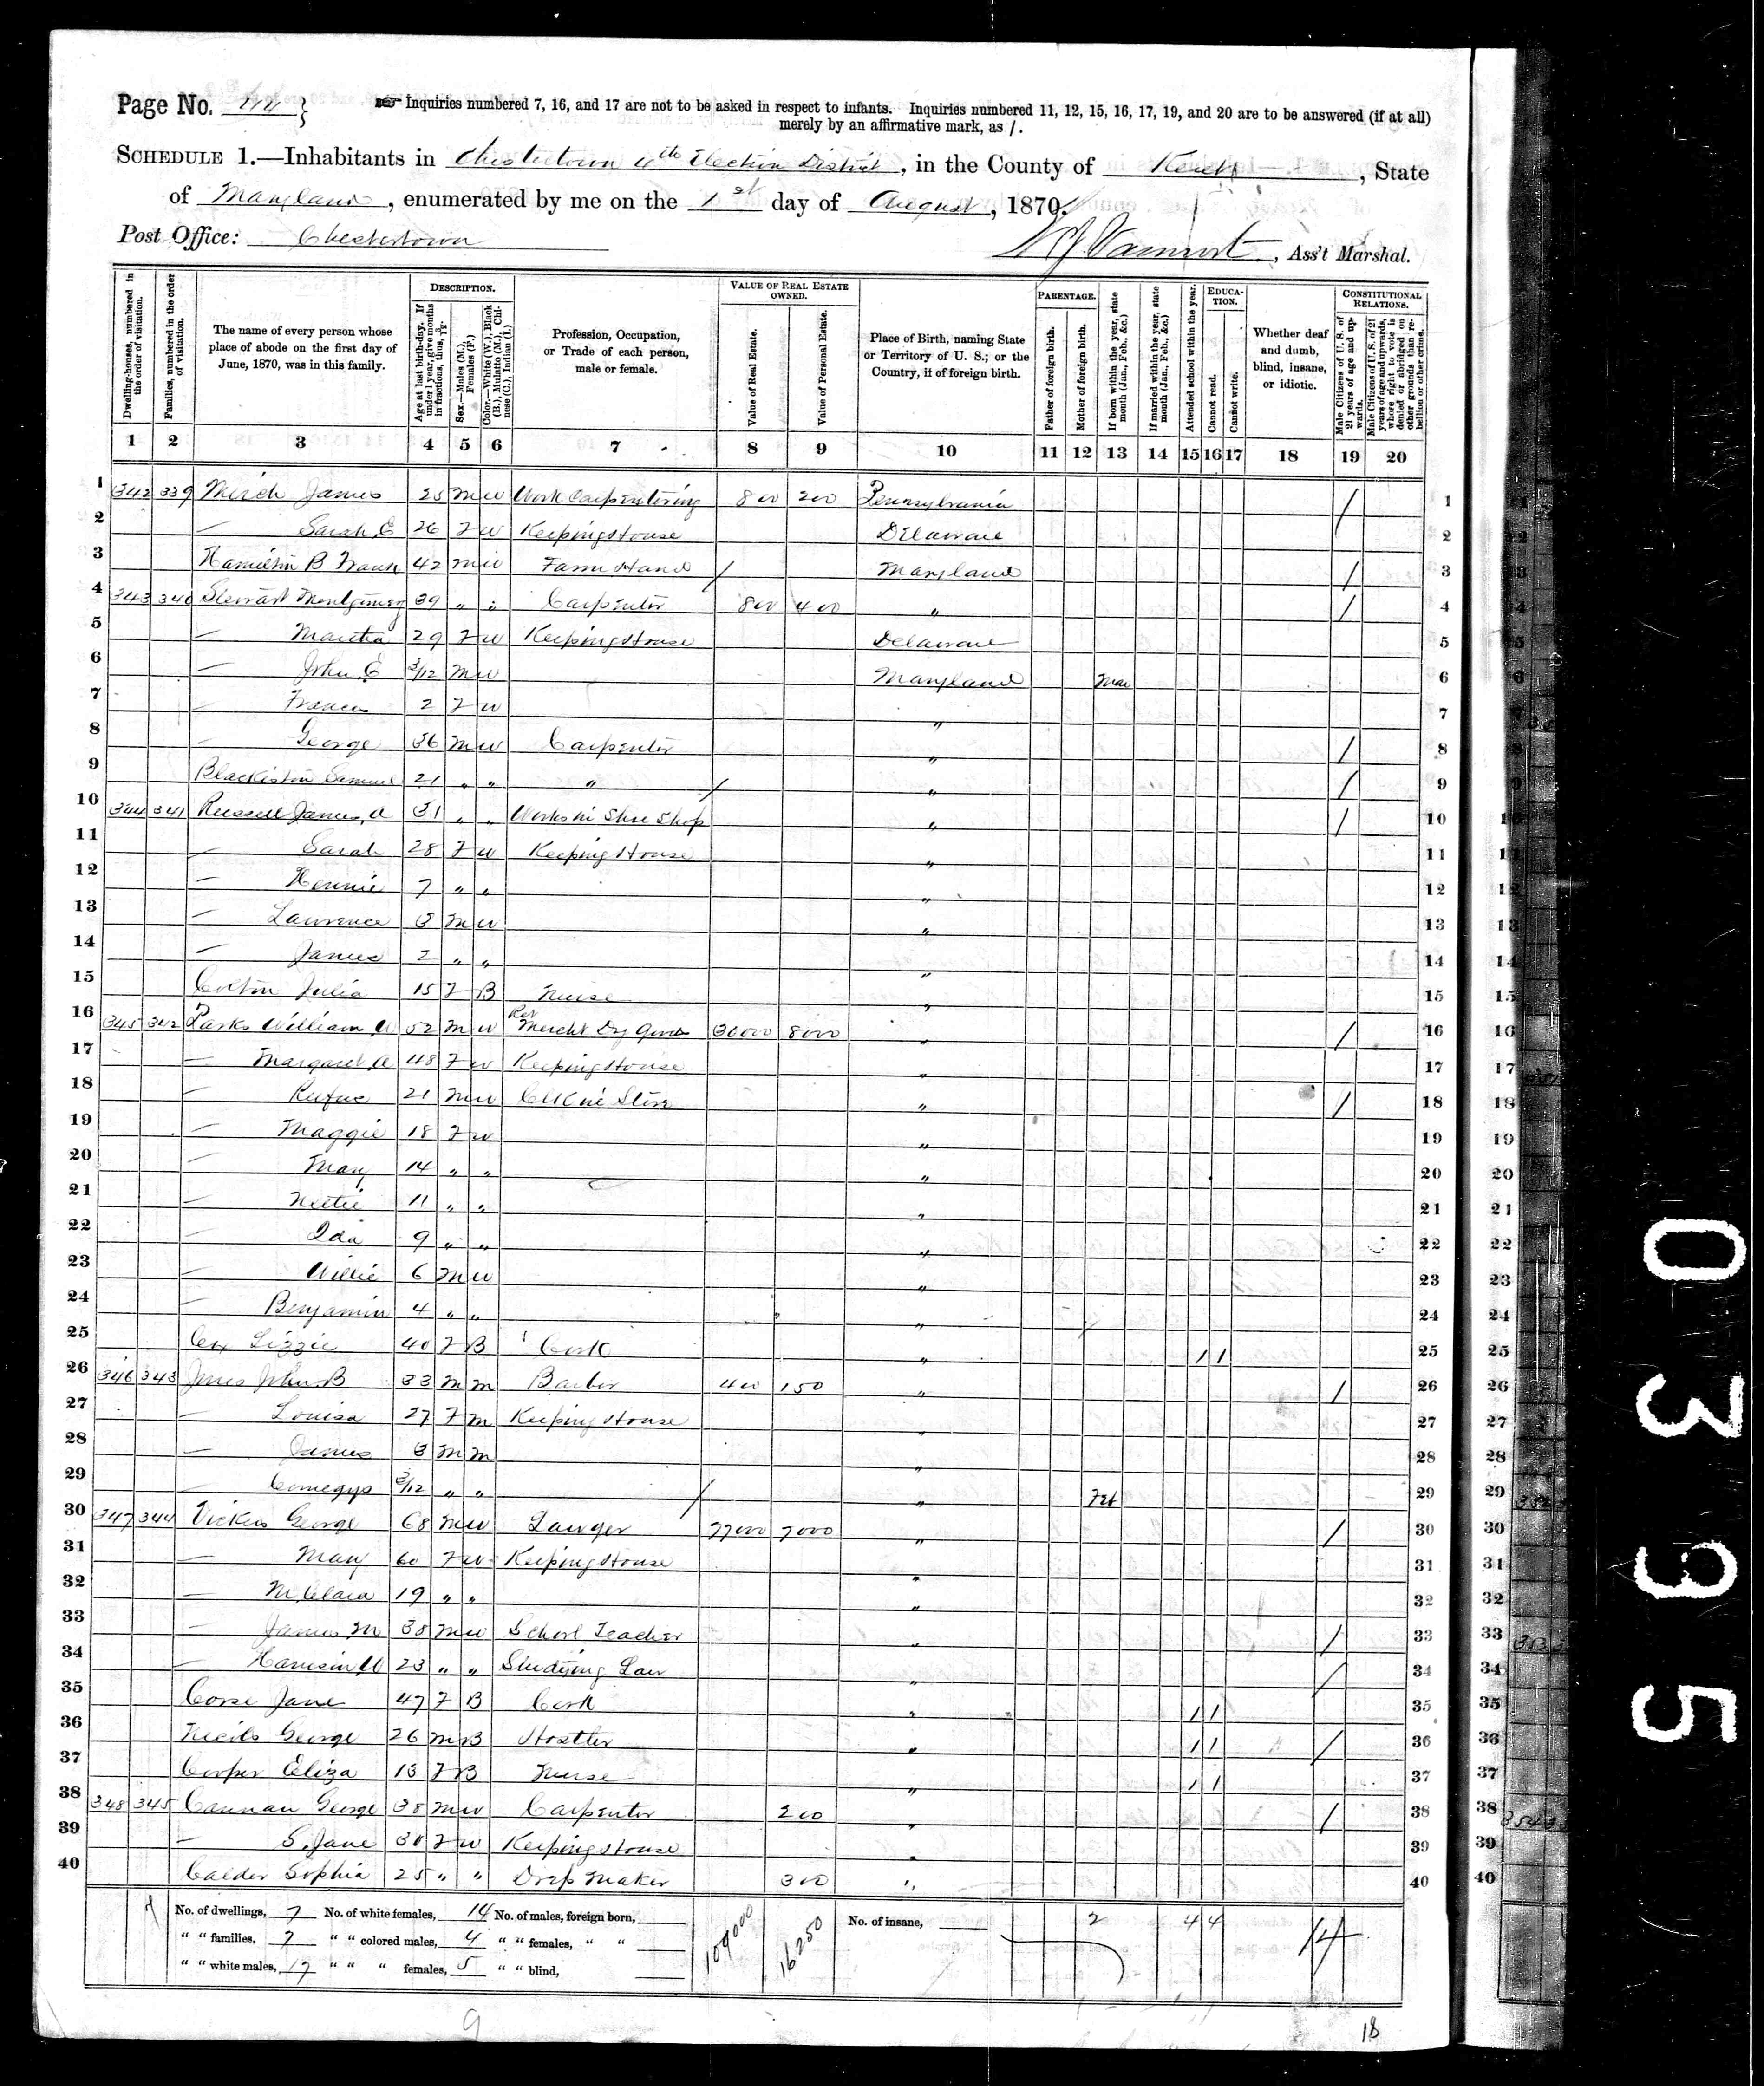 Page No. 44 } Inquiries numbered 7, 16, and 17 are not to be asked in respect to infants. Inquiries numbered 11, 12, 15, 16, 17, 19, and 20 are to be answered (if at all)
merely by an affirmative mark, as /.
SCHEDULE 1.—Inhabitants in Chestertown 4th Election District, in the County of Kent, State
of Maryland, enumerated by me on the 1st day of August, 1870.
Post Office: Chestertown , Ass't Marshal.
Dwelling-houses, numbered in the order of visitation.
Families, numbered in the order of visitation.
The name of every person whose place of abode on the first day of June, 1870, was in this family.
DESCRIPTION.
Age at last birth-day. If under 1 year, give months in fractions, thus, 3/12.
Sex.—Males (M.), Females (F.)
Color.—White (W.), Black (B.), Mulatto (M.), Chinese (C.), Indian (I.)
Profession, Occupation, or Trade of each person, male or female.
VALUE OF REAL ESTATE OWNED.
Value of Real Estate.
Value of Personal Estate.
Place of Birth, naming State or Territory of U. S.; or the Country, if of foreign birth.
PARENTAGE.
Father of foreign birth.
Mother of foreign birth.
If born within the year, state month (Jan., Feb., &c.)
If married within the year, state month (Jan., Feb., &c.)
Attended school within the year.
EDUCATION.
Cannot read.
Cannot write.
Whether deaf and dumb, blind, insane, or idiotic.
CONSTITUTIONAL RELATIONS.
Male Citizens of U. S. of 21 years of age and upwards.
Male Citizens of U. S. of 21 years of age and upwards, whose right to vote is denied or abridged on other grounds than rebellion or other crime.
1 2 3 4 5 6 7 8 9 10 11 12 13 14 15 16 17 18 19 20
1 342 339 James 25 M W Work Carpentering 800 200 Pennsylvania / 1
2 — Sarah E 26 F W Keeping House Delaware 2
3 Hamilton B Frank 42 M W Farm Hand / Maryland / 3
4 343 340 Stewart Montgomery 39 " " Carpenter 800 400 " / 4
5 — Martha 29 F W Keeping House Delaware 5
6 — John E 3/12 M W Maryland Mar 6
7 — Frances 2 F W " 7
8 — George 36 M W Carpenter " / 8
9 Blackiston Samuel 21 " " " / " / 9
10 344 341 Russell James A 31 " " Works in Shoe Shop " / 10
11 — Sarah 28 F W Keeping House " 11
12 — 7 " " " 12
13 — Lawrence M W " 13
14 — James 2 " " " 14
15 Julia 15 F B Nurse " 15
16 345 342 Parks William A 52 M W Ret Mercht Dry Goods 30000 8000 " / 16
17 — Margaret A 48 F W Keeping House " 17
18 — Rufus 21 M W Clk in Store " / 18
19 — Maggie 18 F W " 19
20 — Mary 14 " " " 20
21 — Nettie 11 " " " 21
22 — Ida 9 " " " 22
23 — Willie 6 M W " 23
24 — Benjamin 4 " " " 24
25 Lizzie 40 F B Cook " / / 25
26 346 343 Jones John B 33 M M Barber 400 150 " / 26
27 — Louisa 27 F M Keeping House " 27
28 — James 3 M M " 28
29 — Comegys 3/12 " " / " Feb 29
30 347 344 Vickers George 68 M W Lawyer 77000 7000 " / 30
31 — Mary 60 F W Keeping House " 31
32 — M Clara 19 " " " 32
33 — James M 38 M W School Teacher " / 33
34 — Harrison W 23 " " Studying Law " / 34
35 Corse Jane 47 F B Cook " / / 35
36 George 26 M B Hostler " / / / 36
37 Cooper Eliza 13 F B Nurse " / / 37
38 348 345 Cannan George 38 M W Carpenter 200 " / 38
39 — S. Jane 30 F W Keeping House " 39
40 Calder Sophia 25 " " Dress Maker 300 " 40
No. of dwellings, 7 No. of white females, 14 No. of males, foreign born, 109000 16250 No. of insane, 2 4 4 14
" " families, 7 " " colored males, 4 " " females, " "
" " white males, 17 " " " females, 5 " " blind,
9
18
0335